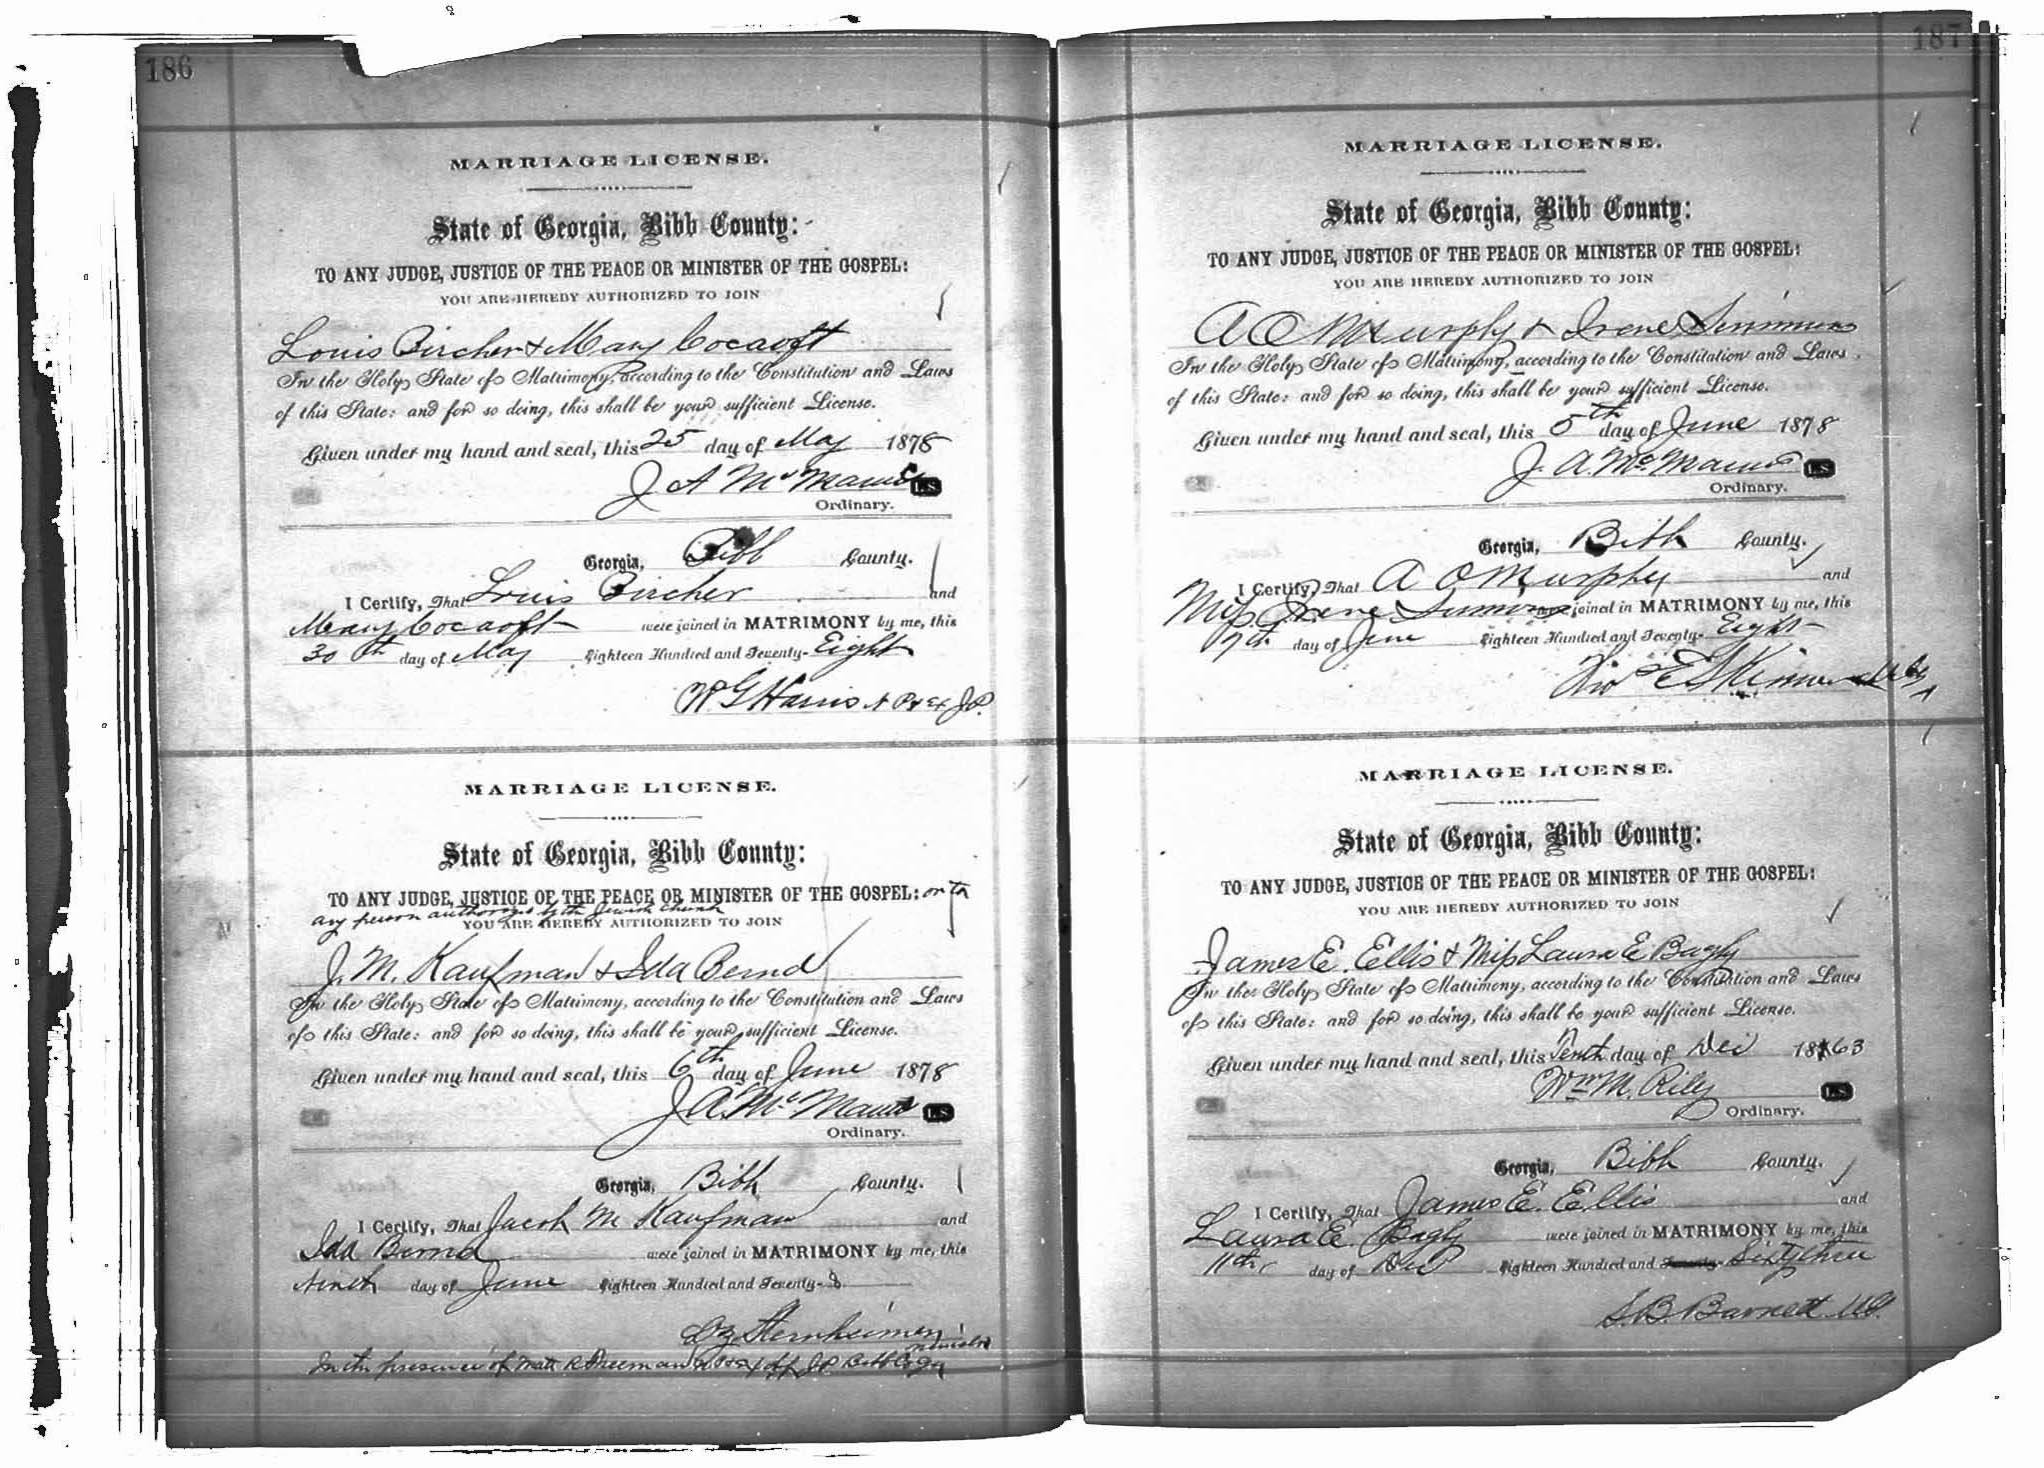 186
MARRIAGE LICENSE.
State of Georgia, Bibb County:
TO ANY JUDGE, JUSTICE OF THE PEACE OR MINISTER OF THE GOSPEL:
YOU ARE HEREBY AUTHORIZED TO JOIN
Louis Bircher & Mary Cocroft
In the Holy State of Matrimony, according to the Constitution and Laws
of this State: and for so doing, this shall be your sufficient License.
Given under my hand and seal, this 25 day of May 1878
J A McManus L.S.
Ordinary.
Georgia, Bibb County.
I Certify, That Louis Bircher and
Mary Cocroft were joined in MATRIMONY by me, this
30th day of May Eighteen Hundred and Seventy-Eight
W. G Harris N P & Ex J.P.
MARRIAGE LICENSE.
State of Georgia, Bibb County:
TO ANY JUDGE, JUSTICE OF THE PEACE OR MINISTER OF THE GOSPEL: or to
any person authorized by the Jewish Church
YOU ARE HEREBY AUTHORIZED TO JOIN
J. M. Kaufman & Ida Bernd
In the Holy State of Matrimony, according to the Constitution and Laws
of this State: and for so doing, this shall be your sufficient License.
Given under my hand and seal, this 6th day of June 1878
J A. McManus L.S.
Ordinary.
Georgia, Bibb County.
I Certify, That Jacob M Kaufman and
Ida Bernd were joined in MATRIMONY by me, this
Ninth day of June Eighteen Hundred and Seventy-8
Sternheimer
Minister
In the presence of Matt R Freeman J.P. Bibb Co Ga
187
MARRIAGE LICENSE.
State of Georgia, Bibb County:
TO ANY JUDGE, JUSTICE OF THE PEACE OR MINISTER OF THE GOSPEL:
YOU ARE HEREBY AUTHORIZED TO JOIN
A O Murphy & Irene Simmons
In the Holy State of Matrimony, according to the Constitution and Laws
of this State: and for so doing, this shall be your sufficient License.
Given under my hand and seal, this 5th day of June 1878
J. A. McManus L.S.
Ordinary.
Georgia, Bibb County.
I Certify, That A O Murphy and
Miss Irene Simmons were joined in MATRIMONY by me, this
9th day of June Eighteen Hundred and Seventy-Eight
E Skinner
MARRIAGE LICENSE.
State of Georgia, Bibb County:
TO ANY JUDGE, JUSTICE OF THE PEACE OR MINISTER OF THE GOSPEL:
YOU ARE HEREBY AUTHORIZED TO JOIN
James E. Ellis & Miss Laura E Bagly
In the Holy State of Matrimony, according to the Constitution and Laws
of this State: and for so doing, this shall be your sufficient License.
Given under my hand and seal, this Tenth day of Dec 1863
Wm M. Riley L.S.
Ordinary.
Georgia, Bibb County.
I Certify, That James E. Ellis and
Laura E. Bagly were joined in MATRIMONY by me, this
11th, day of Dec Eighteen Hundred and Seventy- Sixty three
S. B. Barnett MG.